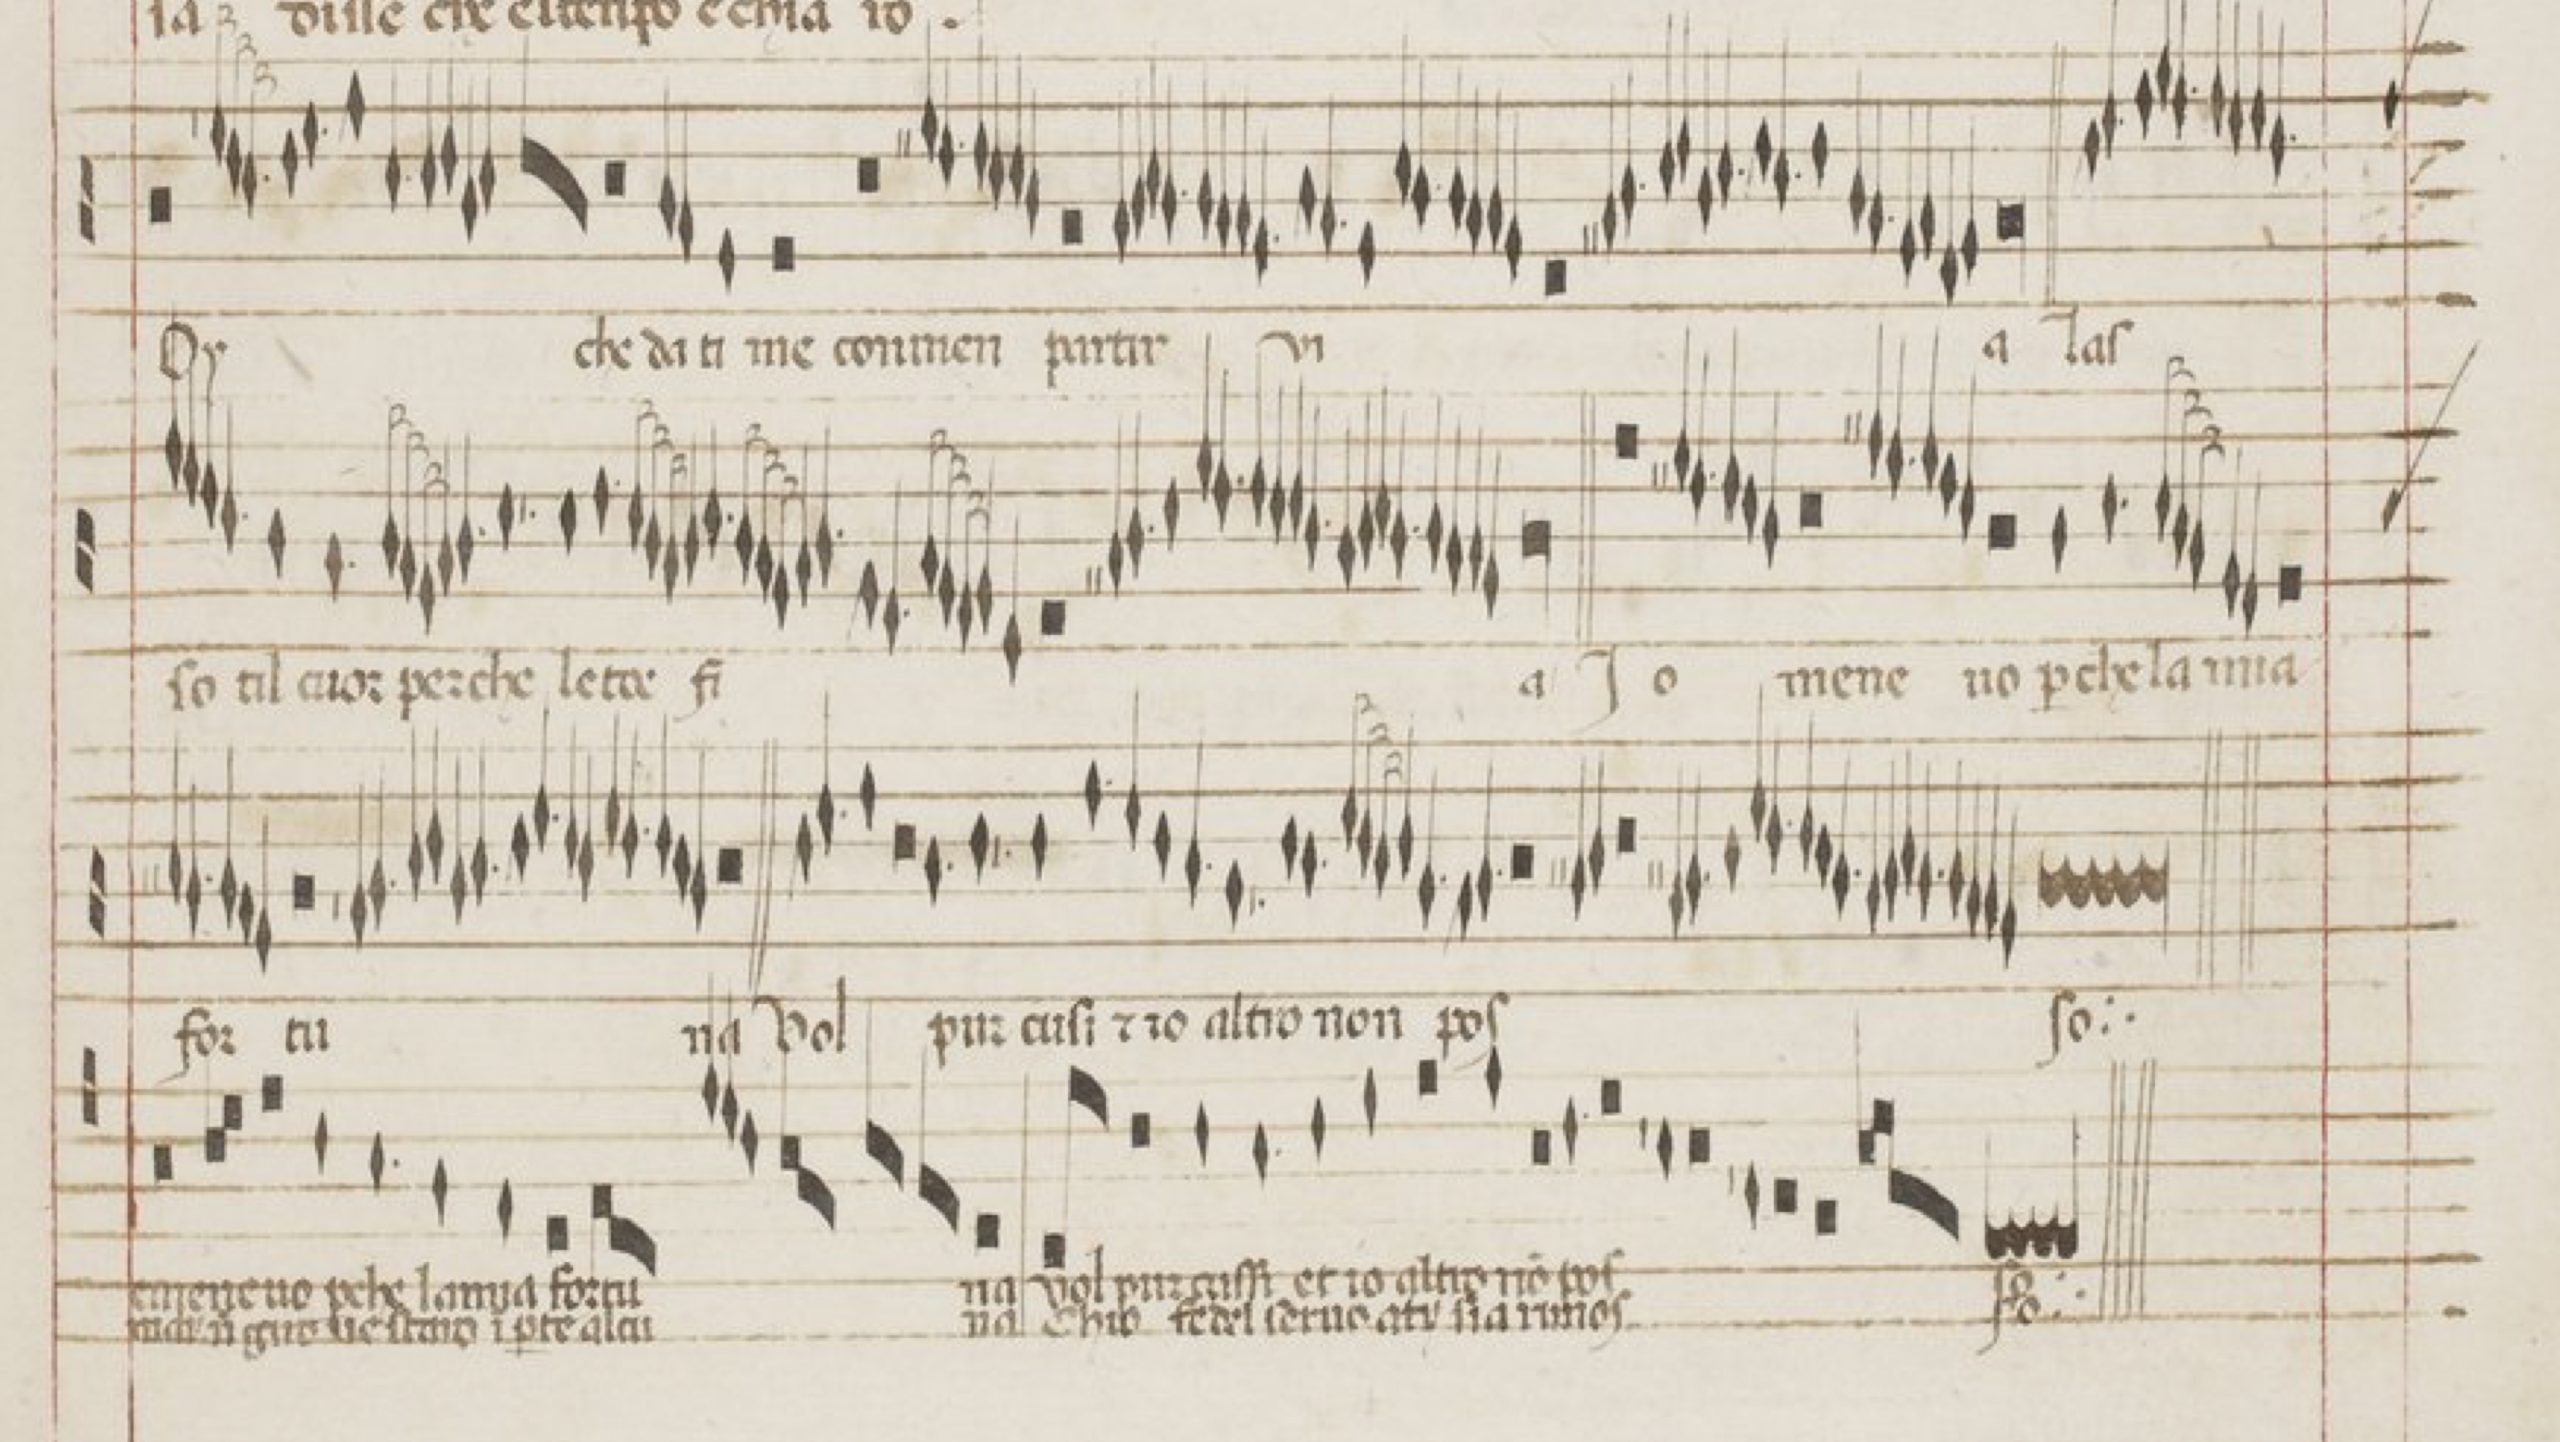 sia disse che el tenpo e chia ro .
Or che da ti me conmen partir vi a Las
so til cuor perche lette fi a I o mene uo pche la mia
for tu na Vol pur cusi ⁊ io altro non pos so :·
pche la mia fortu na vol pur cussi et io altro nō pos so :·
na Chio fedel seruo a ti sia rimos so :·